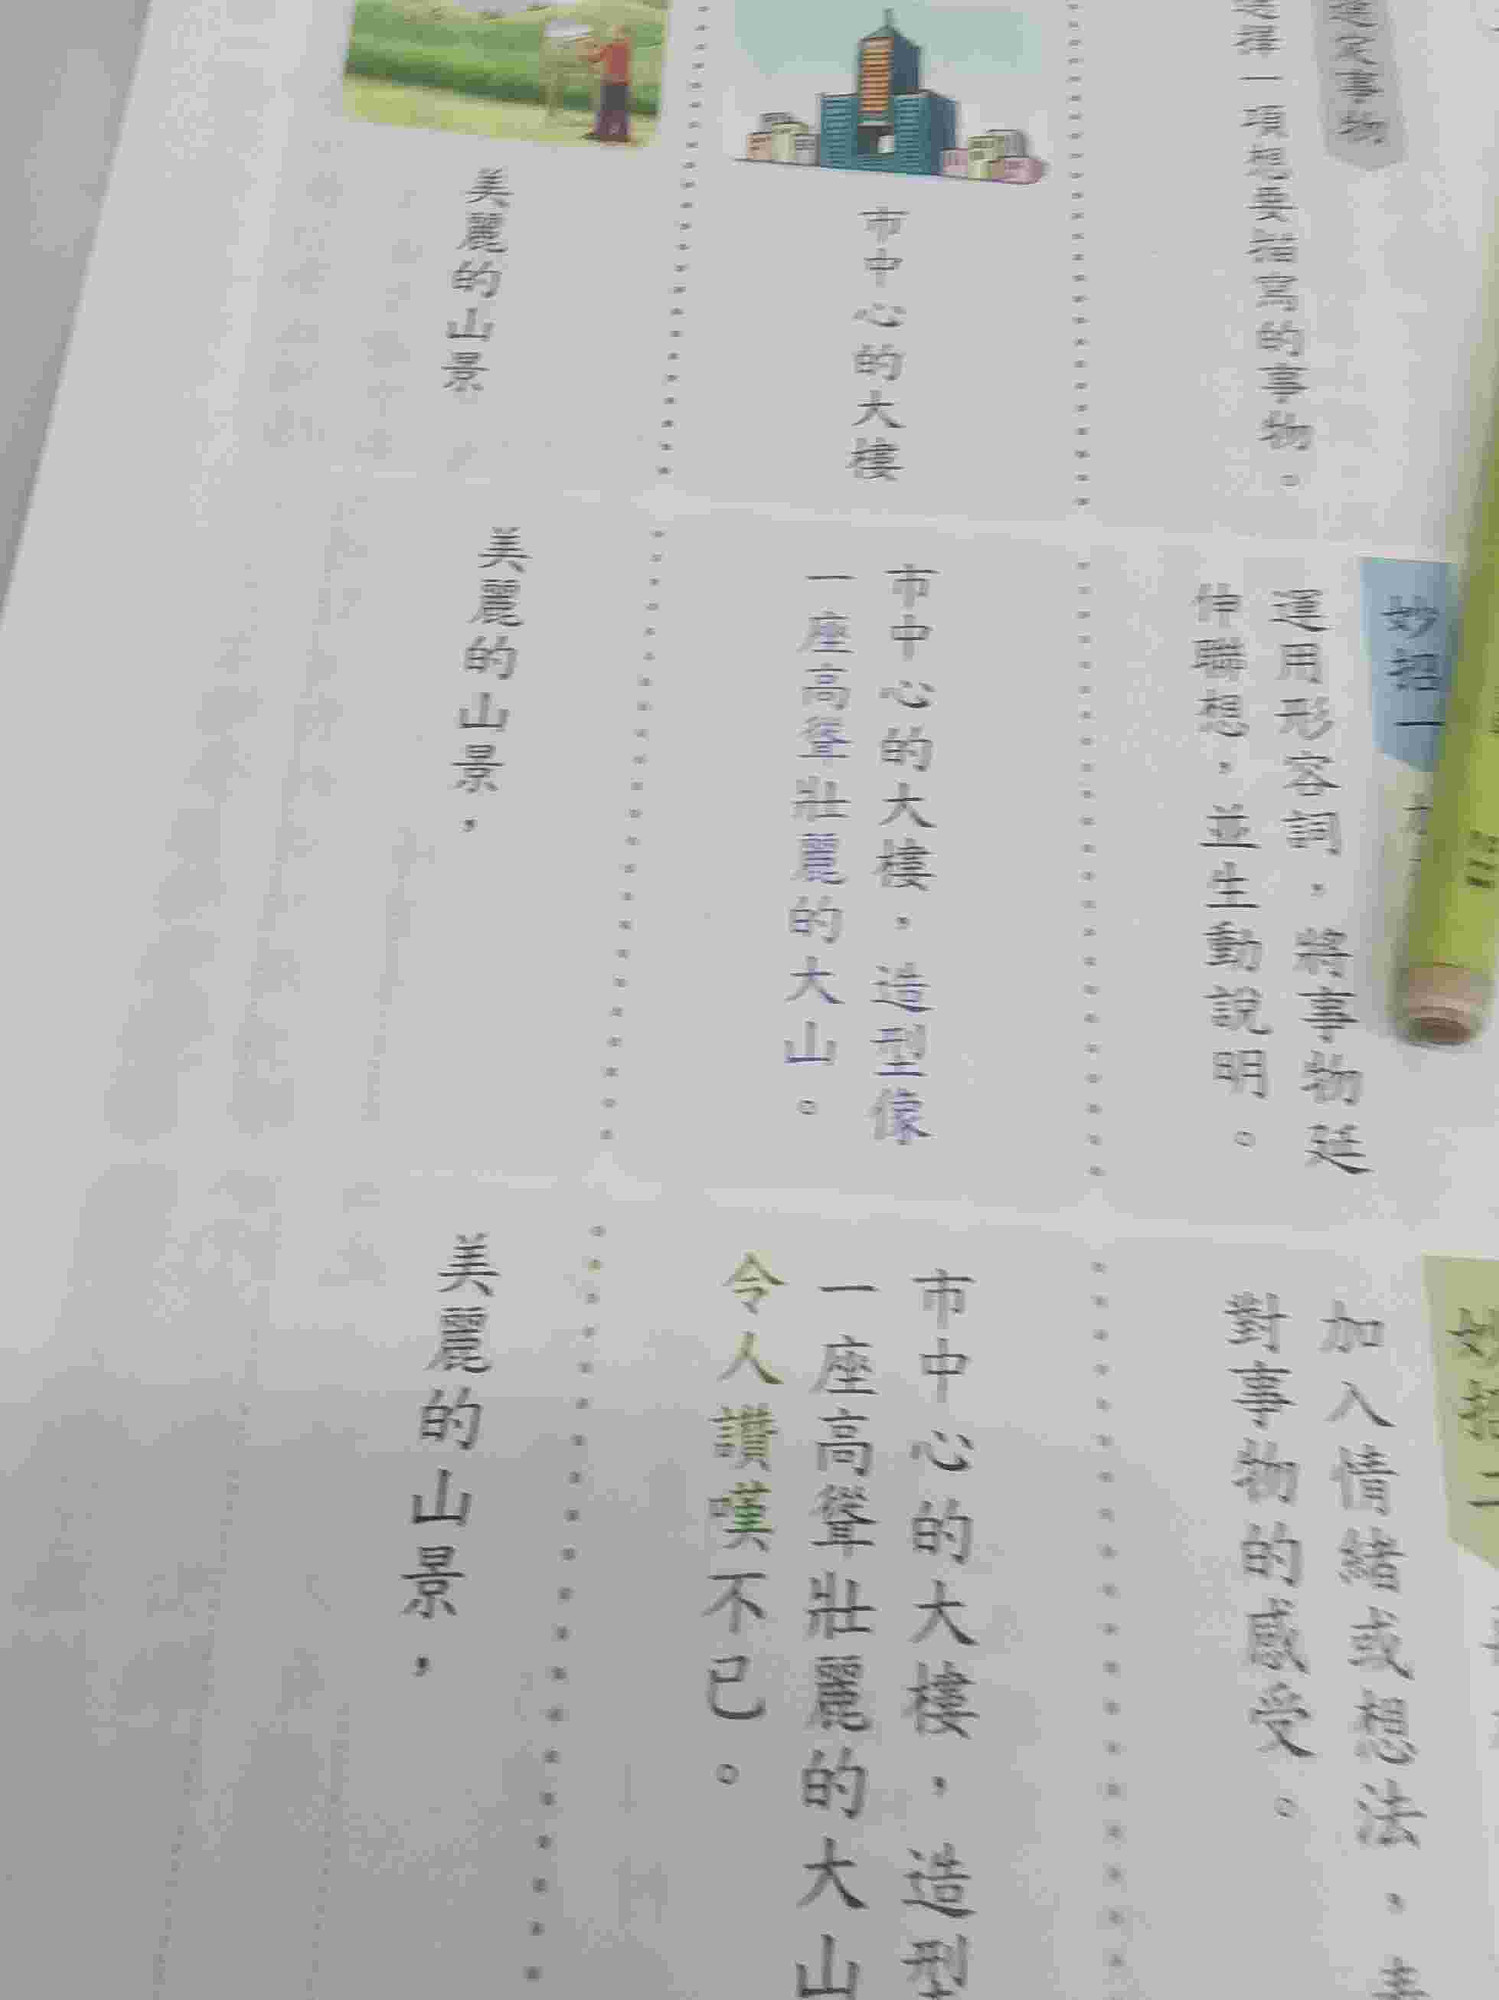 選擇一項想要描寫的事物。
市中心的大樓
美麗的山景
妙招一
運用形容詞,將事物延
伸聯想,並生動說明。
市中心的大樓,造型像
一座高聳壯麗的大山。
美麗的山景,
妙招二
加入情緒或想法,
對事物的感受。
市中心的大樓,造型
一座高聳壯麗的大山
令人讚嘆不已。
美麗的山景,